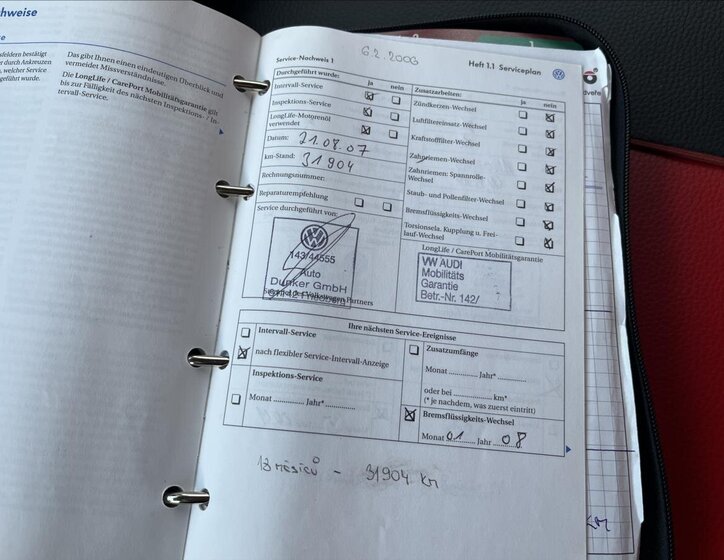 hweise
sfeldern bestätigt
er durch Ankreuzen
, welcher Service
geführt wurde.
Das gibt Ihnen einen eindeutigen Überblick und
vermeidet Missverständnisse.
Die LongLife / CarePort Mobilitätsgarantie gilt
bis zur Fälligkeit des nächsten Inspektions- / In-
tervall-Service.
6.2.2006
Service-Nachweis 1
Heft 1.1 Serviceplan
Durchgeführt wurde:
ja nein
Intervall-Service
Inspektions-Service
LongLife-Motorenöl
verwendet
Datum: 21.08.07
km-Stand: 31904
Rechnungsnummer:
Reparaturempfehlung
Service durchgeführt von:
143/44555
Auto
Dünker GmbH
Zusatzarbeiten:
ja nein
Zündkerzen-Wechsel
Luftfiltereinsatz-Wechsel
Kraftstofffilter-Wechsel
Zahnriemen-Wechsel
Zahnriemen: Spannrolle-
Wechsel
Staub- und Pollenfilter-Wechsel
Bremsflüssigkeits-Wechsel
Torsionsela. Kupplung u. Frei-
lauf-Wechsel
LongLife / CarePort Mobilitätsgarantie
VW AUDI
Mobilitäts
Garantie
Betr.-Nr. 142/
Ihre nächsten Service-Ereignisse
Intervall-Service
nach flexibler Service-Intervall-Anzeige
Inspektions-Service
Monat ............ Jahr* ............
Zusatzumfänge
Monat ............ Jahr* ............
oder bei ............ km*
(* je nachdem, was zuerst eintritt)
Bremsflüssigkeits-Wechsel
Monat 01 Jahr 08
18 měsíců - 31904 km